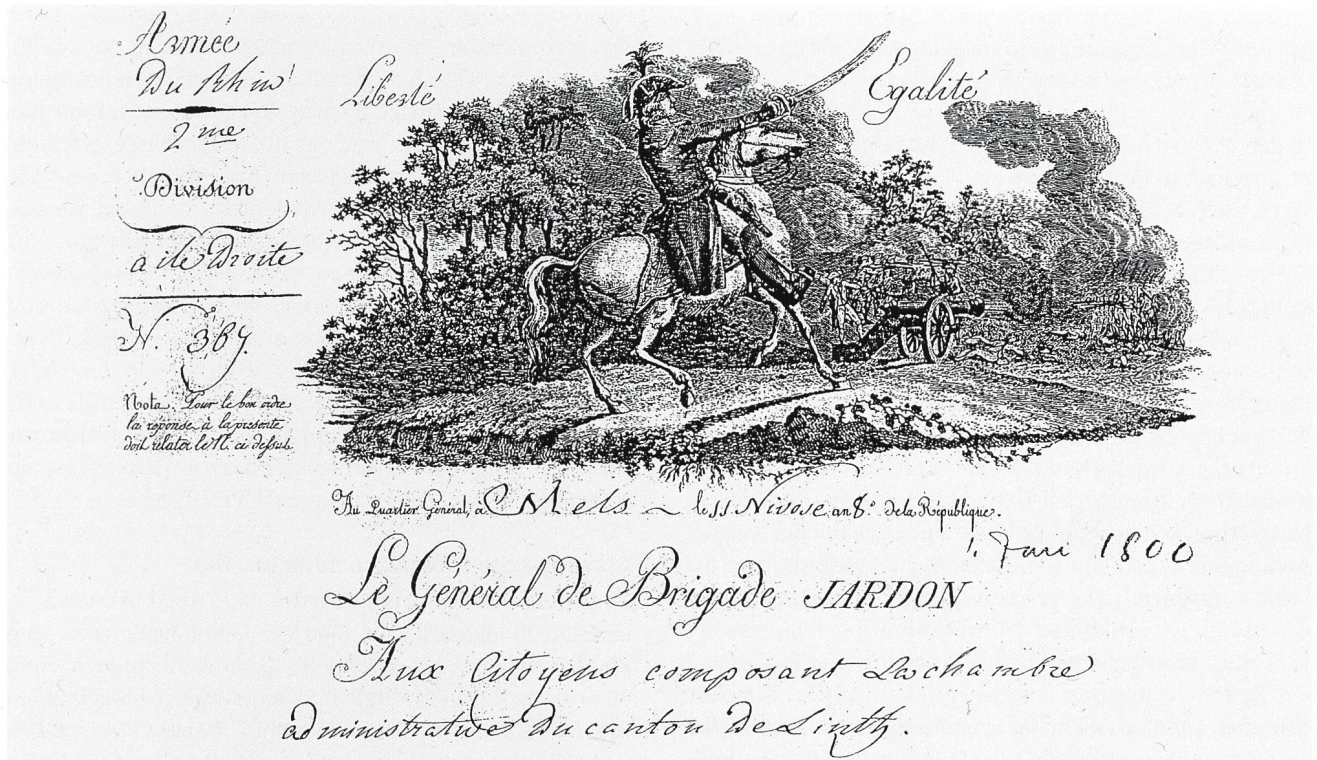 Armée
Du Rhin
2me
Division
aile Droite
N. 367.
Nota. Pour le bon ordre
la réponse à la présente
doit relater le N.º ci dessus.
Liberté
Egalité
Au Quartier Général, à Mels le 11 Nivose an 8.e de la République.
1. Janv 1800
Le Général de Brigade JARDON
Aux Citoyens composant La chambre
administrative du canton de Linth.